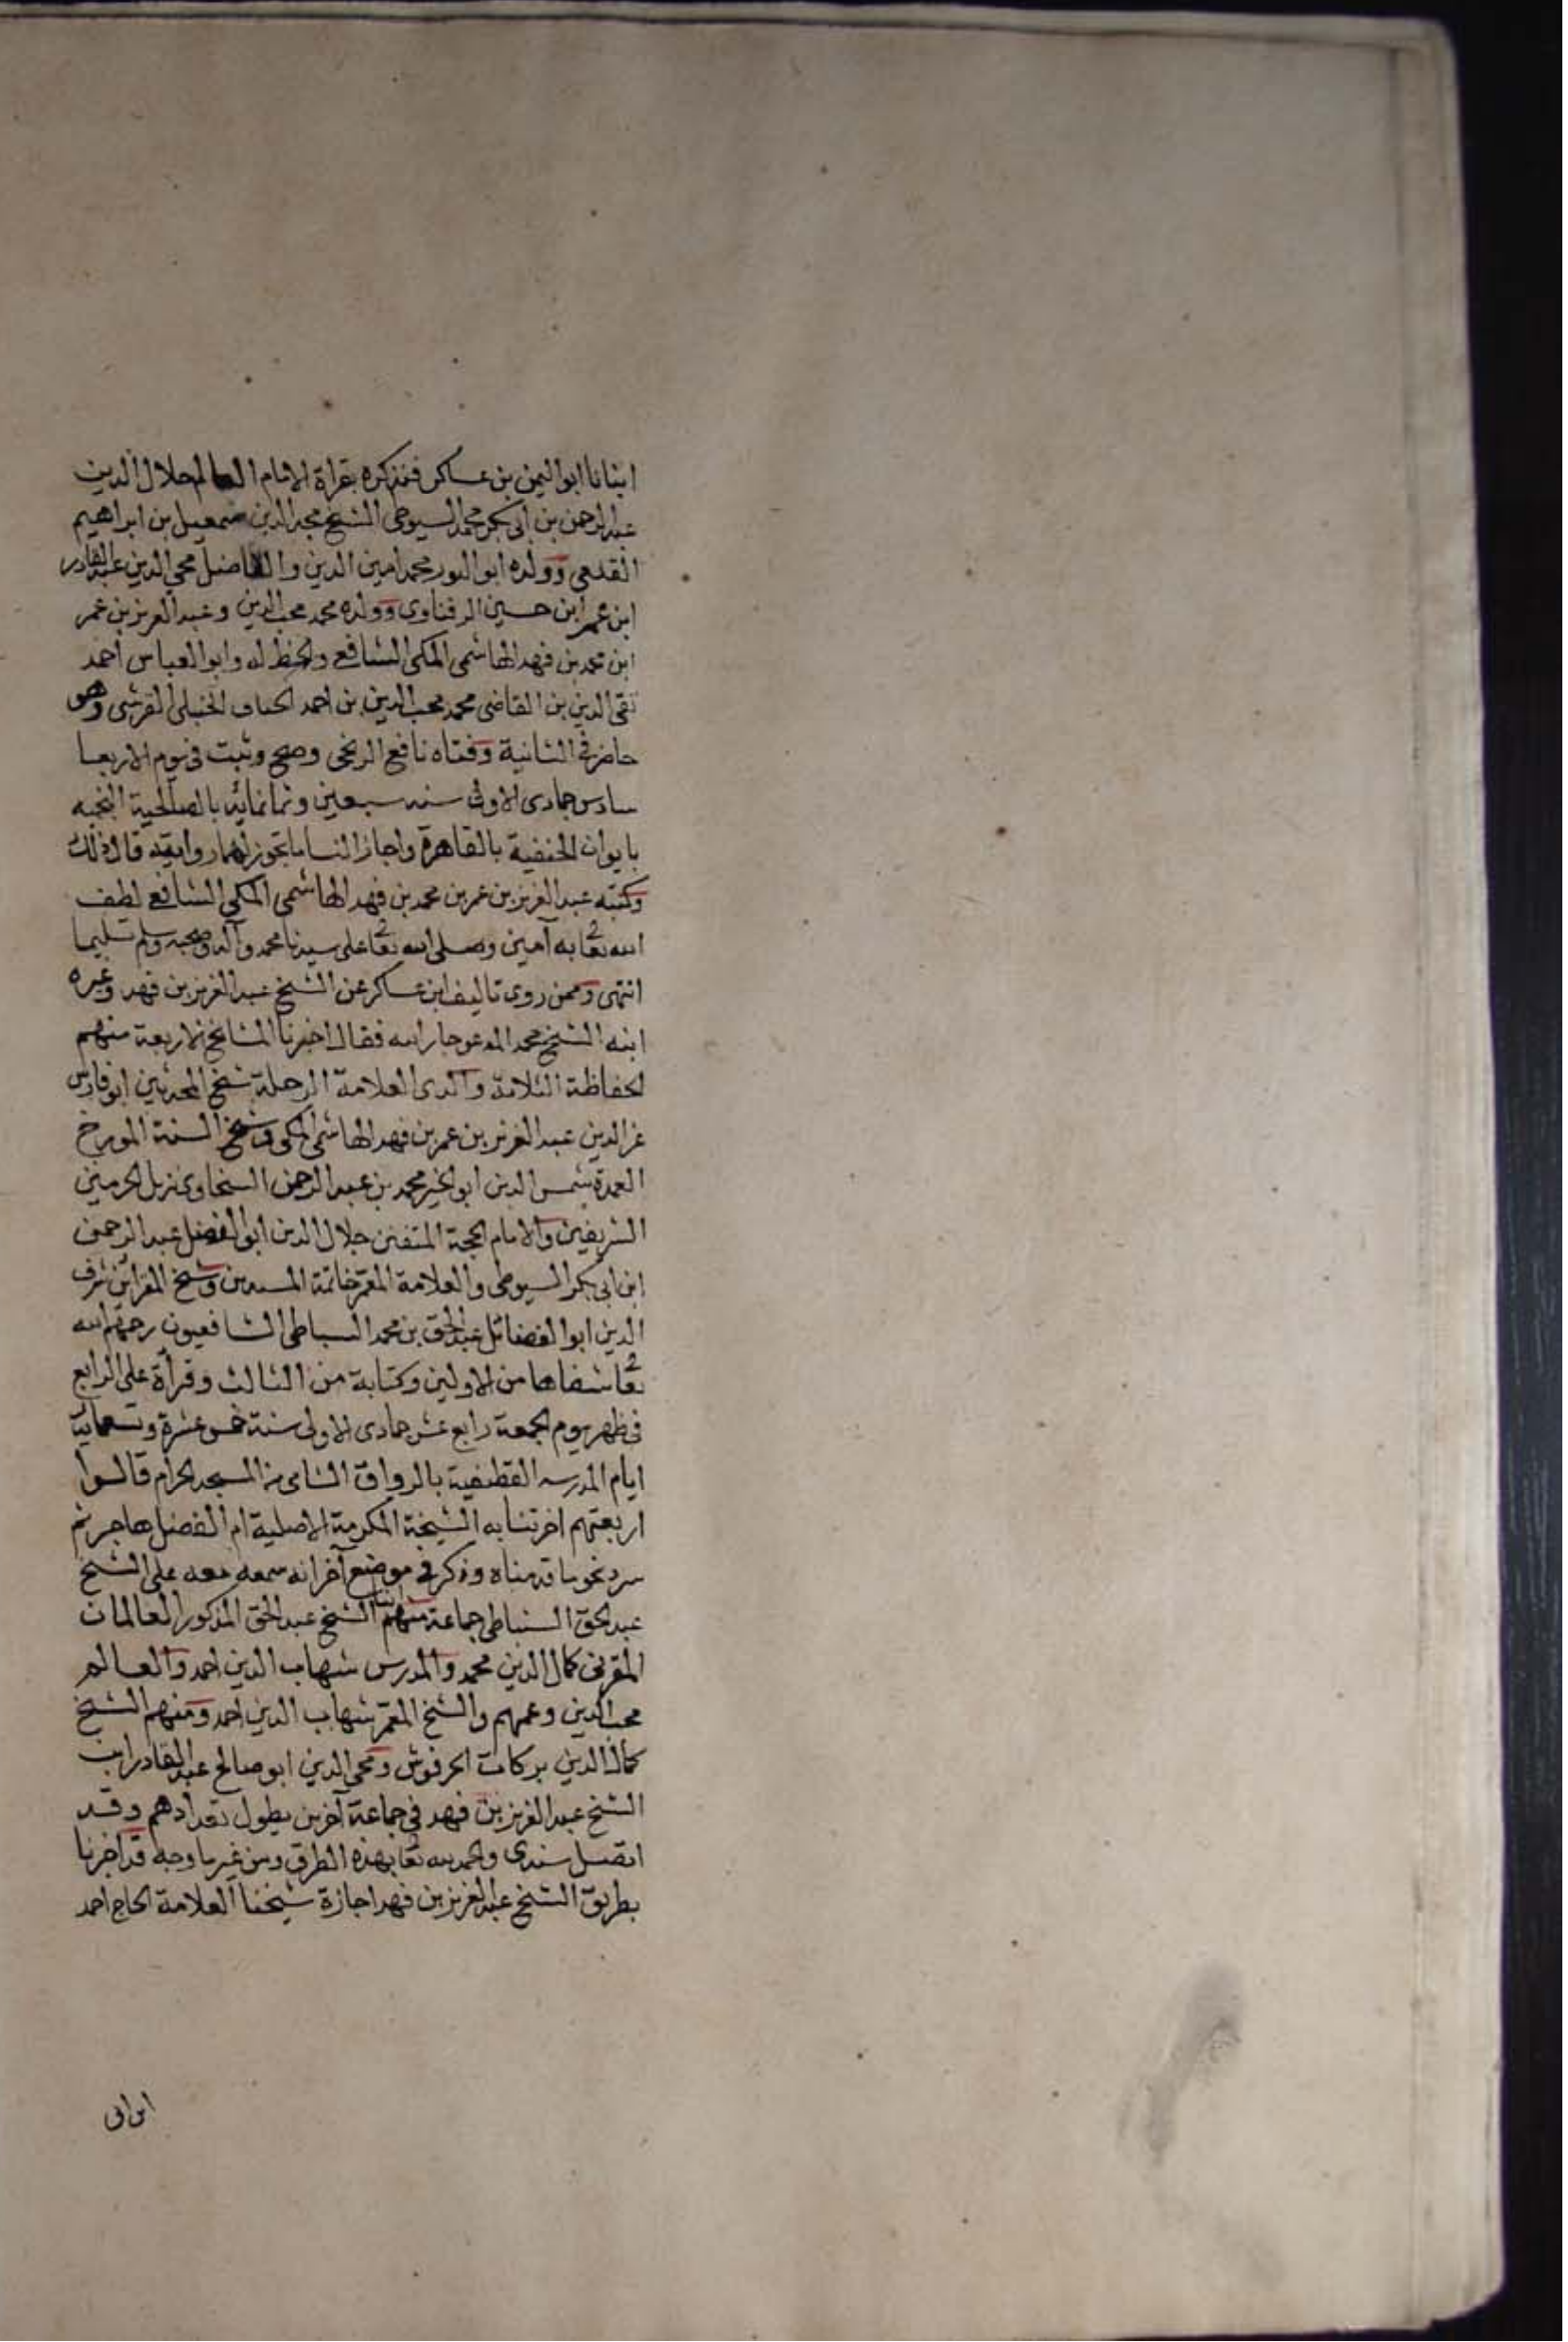 انبانا ابو اليمن بن عساكر فذكره بقراة الامام العالم جلال الدين
عبد الرحمن بن ابى بكر محمد السيوطى الشيخ مجد الدين اسمعيل بن ابراهيم
القلعى وولده ابو النور محمد امين الدين والفاضل محي الدين عبد القادر
ابن عمر ابن حسين الزفتاوى وولده محمد محب الدين وعبد العزيز بن عمر
ابن محمد بن فهد الهاشمى المكى الشافعى والخط له وابو العباس احمد
تقى الدين بن القاضى محمد محب الدين بن احمد الحنبلى القرشى وهو
حاضر في الثانية وفتاه نافع الزنجى وصح وثبت فى يوم الاربعا
سادس جمادى الاولى سنه سبعين وثمانمائة بالصالحية النجميه
بايوان الحنفية بالقاهرة واجاز لنا ما تجوز لهما روايته قال ذلك
وكتبه عبد العزيز بن عمر بن محمد بن فهد الهاشمى المكى الشافعى لطف
الله تعا به آمين وصلى الله تعا على سيدنا محمد وآله وصحبه وسلم تسليما
انتهى وممن روى تاليف ابن عساكر عن الشيخ عبد العزيز بن فهد وغيره
ابنه الشيخ محمد المدعو جار الله فقال اخبرنا المشايخ الاربعة منهم
الحفاظة الثلاثة والدى العلامة الرحلة شيخ المحدثين ابو فارس
عز الدين عبد العزيز بن عمر بن فهد الهاشمى المكى وشيخ السنة المورخ
العمدة شمس الدين ابو الخير محمد بن عبد الرحمن السخاوى نزيل الحرمين
الشريفين والامام الحجة المتفنن جلال الدين ابو الفضل عبد الرحمن
ابن ابى بكر السيوطى والعلامة المعمر خاتمة المسندين وشيخ المقرائين شرف
الدين ابو الفضائل عبد الحق بن محمد السنباطى الشافعيون رحمهم الله
تعا شفاها من الاولين وكتابة من الثالث وقراة على الرابع
فى ظهر يوم الجمعة رابع عشر جمادى الاولى سنة خمس عشرة وتسعمائة
ايام المدرسه بالرواق الشامى من المسجد الحرام قالوا
اربعتهم اخبرتنا به الشيخة المكرمة الاصلية ام الفضل هاجر ثم
سرد نحو ما قدمناه وذكر في موضع آخر انه سمعه معه على الشيخ
عبد الحق السنباطى جماعة منهم ابنا الشيخ عبد الحق المذكور العالمان
المقرئى كمال الدين محمد والمدرس شهاب الدين احمد والعالم
محب الدين وعمهم والشيخ المعمر شهاب الدين احمد ومنهم الشيخ
كمال الدين بركات الحرفوش ومحي الدين ابو صالح عبد القادر ابن
الشيخ عبد العزيز بن فهد فى جماعة آخرين يطول تعدادهم وقد
اتصل سندى والحمد لله تعا بهذه الطرق ومن غير ما وجه قد اخبرنا
بطريق الشيخ عبد العزيز بن فهد اجازة شيخنا العلامة الحاج احمد
ابن ابى